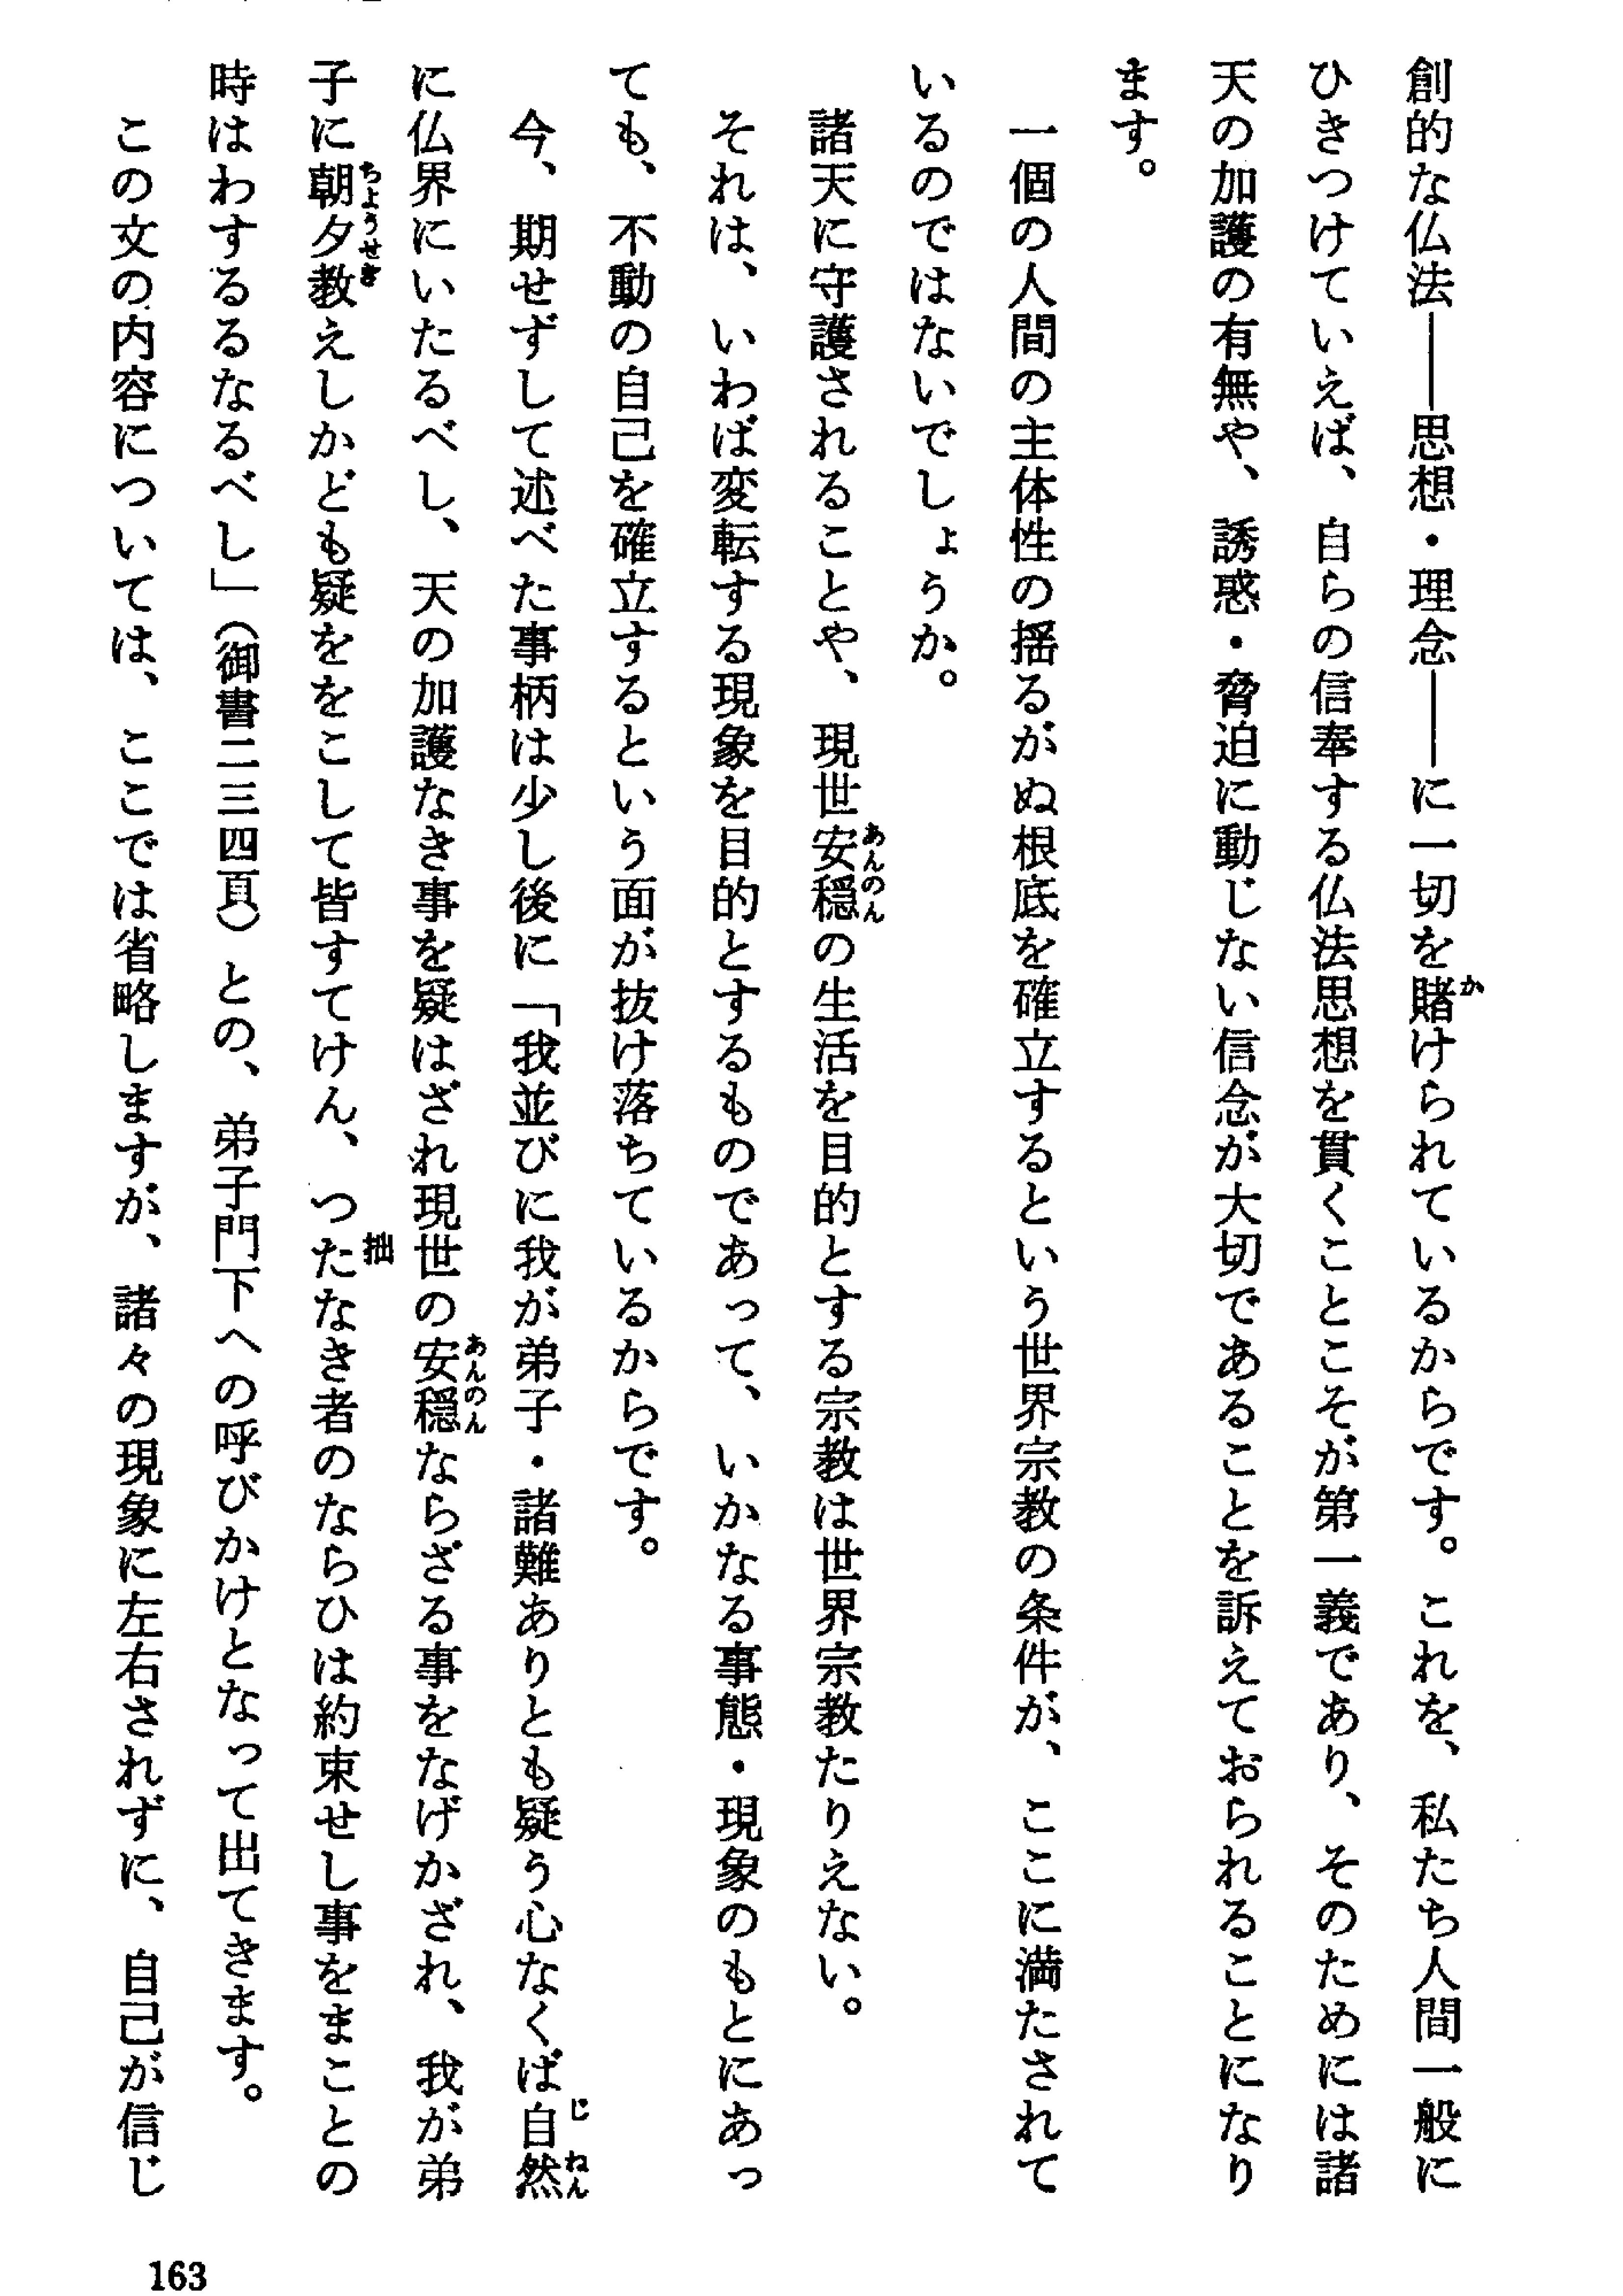 創的な仏法――思想・理念――に一切を賭けられているからです。これを、私たち人間一般に
ひきつけていえば、自らの信奉する仏法思想を貫くことこそが第一義であり、そのためには諸
天の加護の有無や、誘惑・脅迫に動じない信念が大切であることを訴えておられることになり
ます。
一個の人間の主体性の揺るがぬ根底を確立するという世界宗教の条件が、ここに満たされて
いるのではないでしょうか。
諸天に守護されることや、現世安穏の生活を目的とする宗教は世界宗教たりえない。
それは、いわば変転する現象を目的とするものであって、いかなる事態・現象のもとにあっ
ても、不動の自己を確立するという面が抜け落ちているからです。
今、期せずして述べた事柄は少し後に「我並びに我が弟子・諸難ありとも疑う心なくば自然
に仏界にいたるべし、天の加護なき事を疑はざれ現世の安穏ならざる事をなげかざれ、我が弟
子に朝夕教えしかども疑ををこして皆すてけん、つたなき者のならひは約束せし事をまことの
時はわするるなるべし」（御書二三四頁）との、弟子門下への呼びかけとなって出てきます。
この文の内容については、ここでは省略しますが、諸々の現象に左右されずに、自己が信じ
163